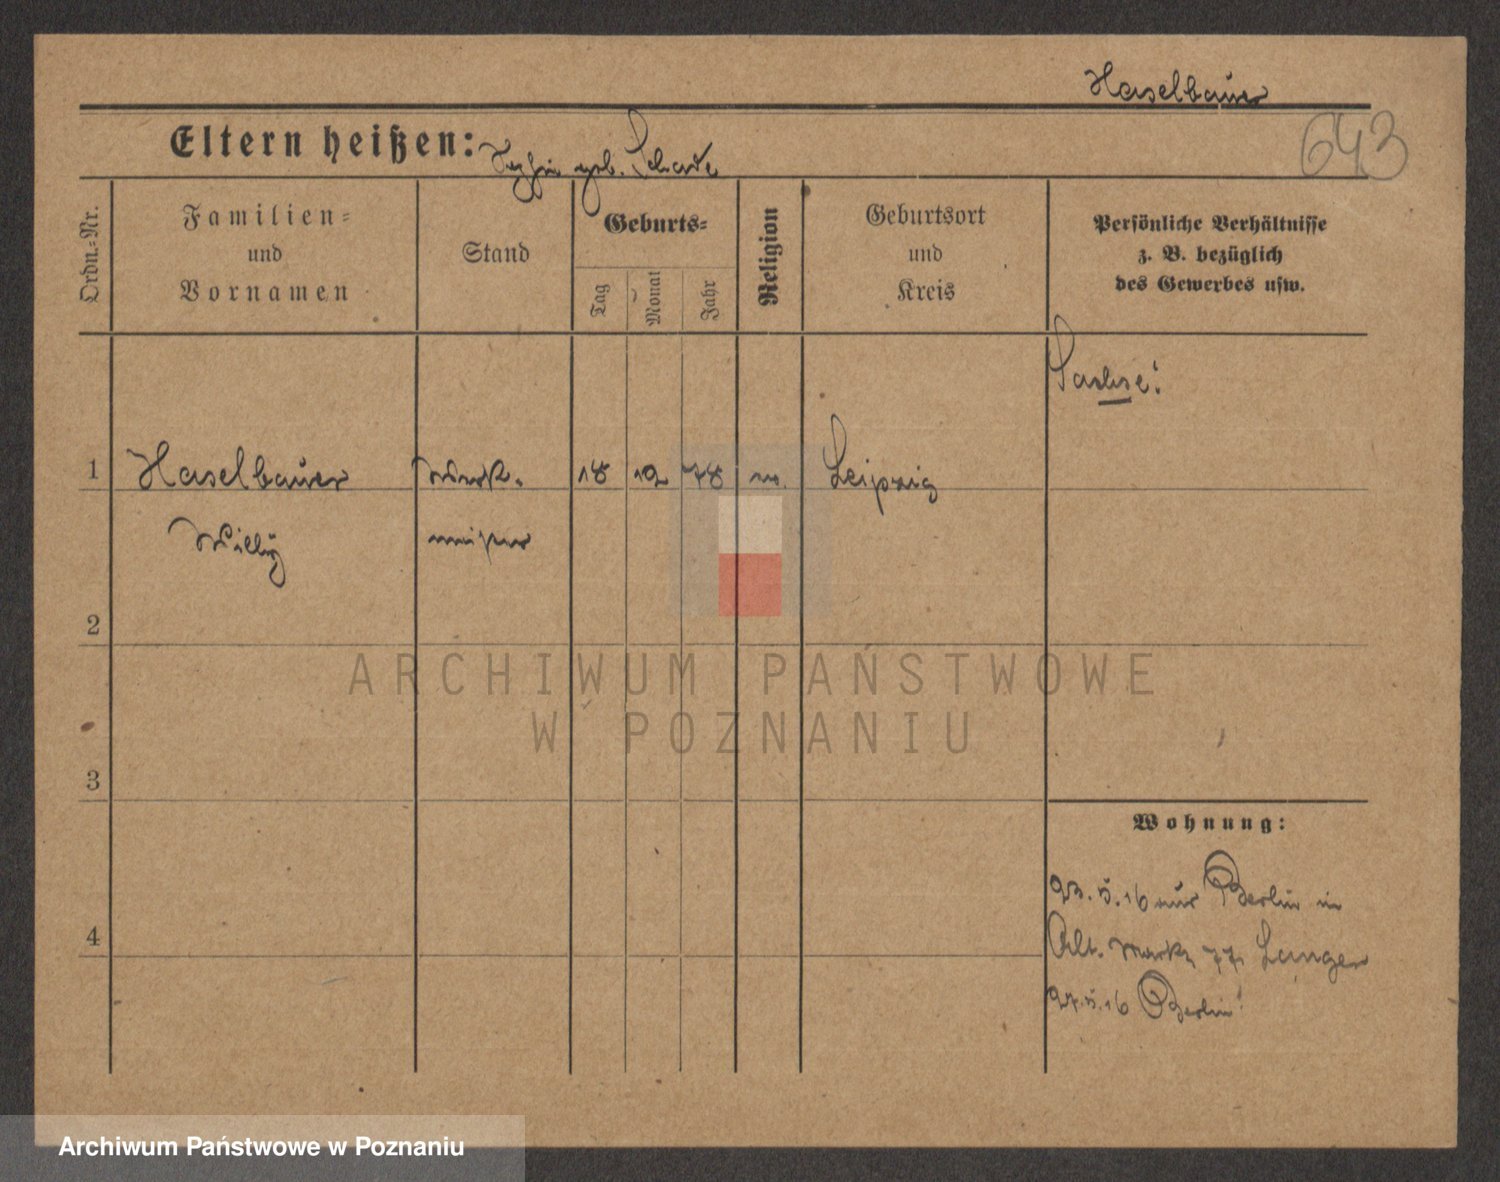 Haselbauer
643
Eltern heißen: geb. Schade
Ordn.=Nr.
Familien=
und
Vornamen
Stand
Geburts=
Tag
Monat
Jahr
Religion
Geburtsort
und
Kreis
Persönliche Verhältnisse
z. B. bezüglich
des Gewerbes usw.
Sachse!
1 Haselbauer Werk- 18 12 78 Leipzig
Willy meister
2
3
4
Wohnung:
23.5.16 aus Berlin in
Alt. Markt 77 Langer
27.5.16 Berlin!
ARCHIWUM PAŃSTWOWE
W POZNANIU
Archiwum Państwowe w Poznaniu